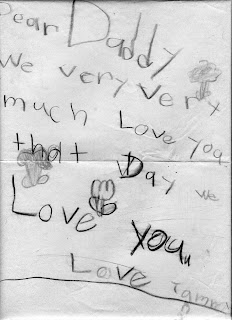 Dear Daddy
we very very
much Love you
that Day we
Love you
Love Tammy